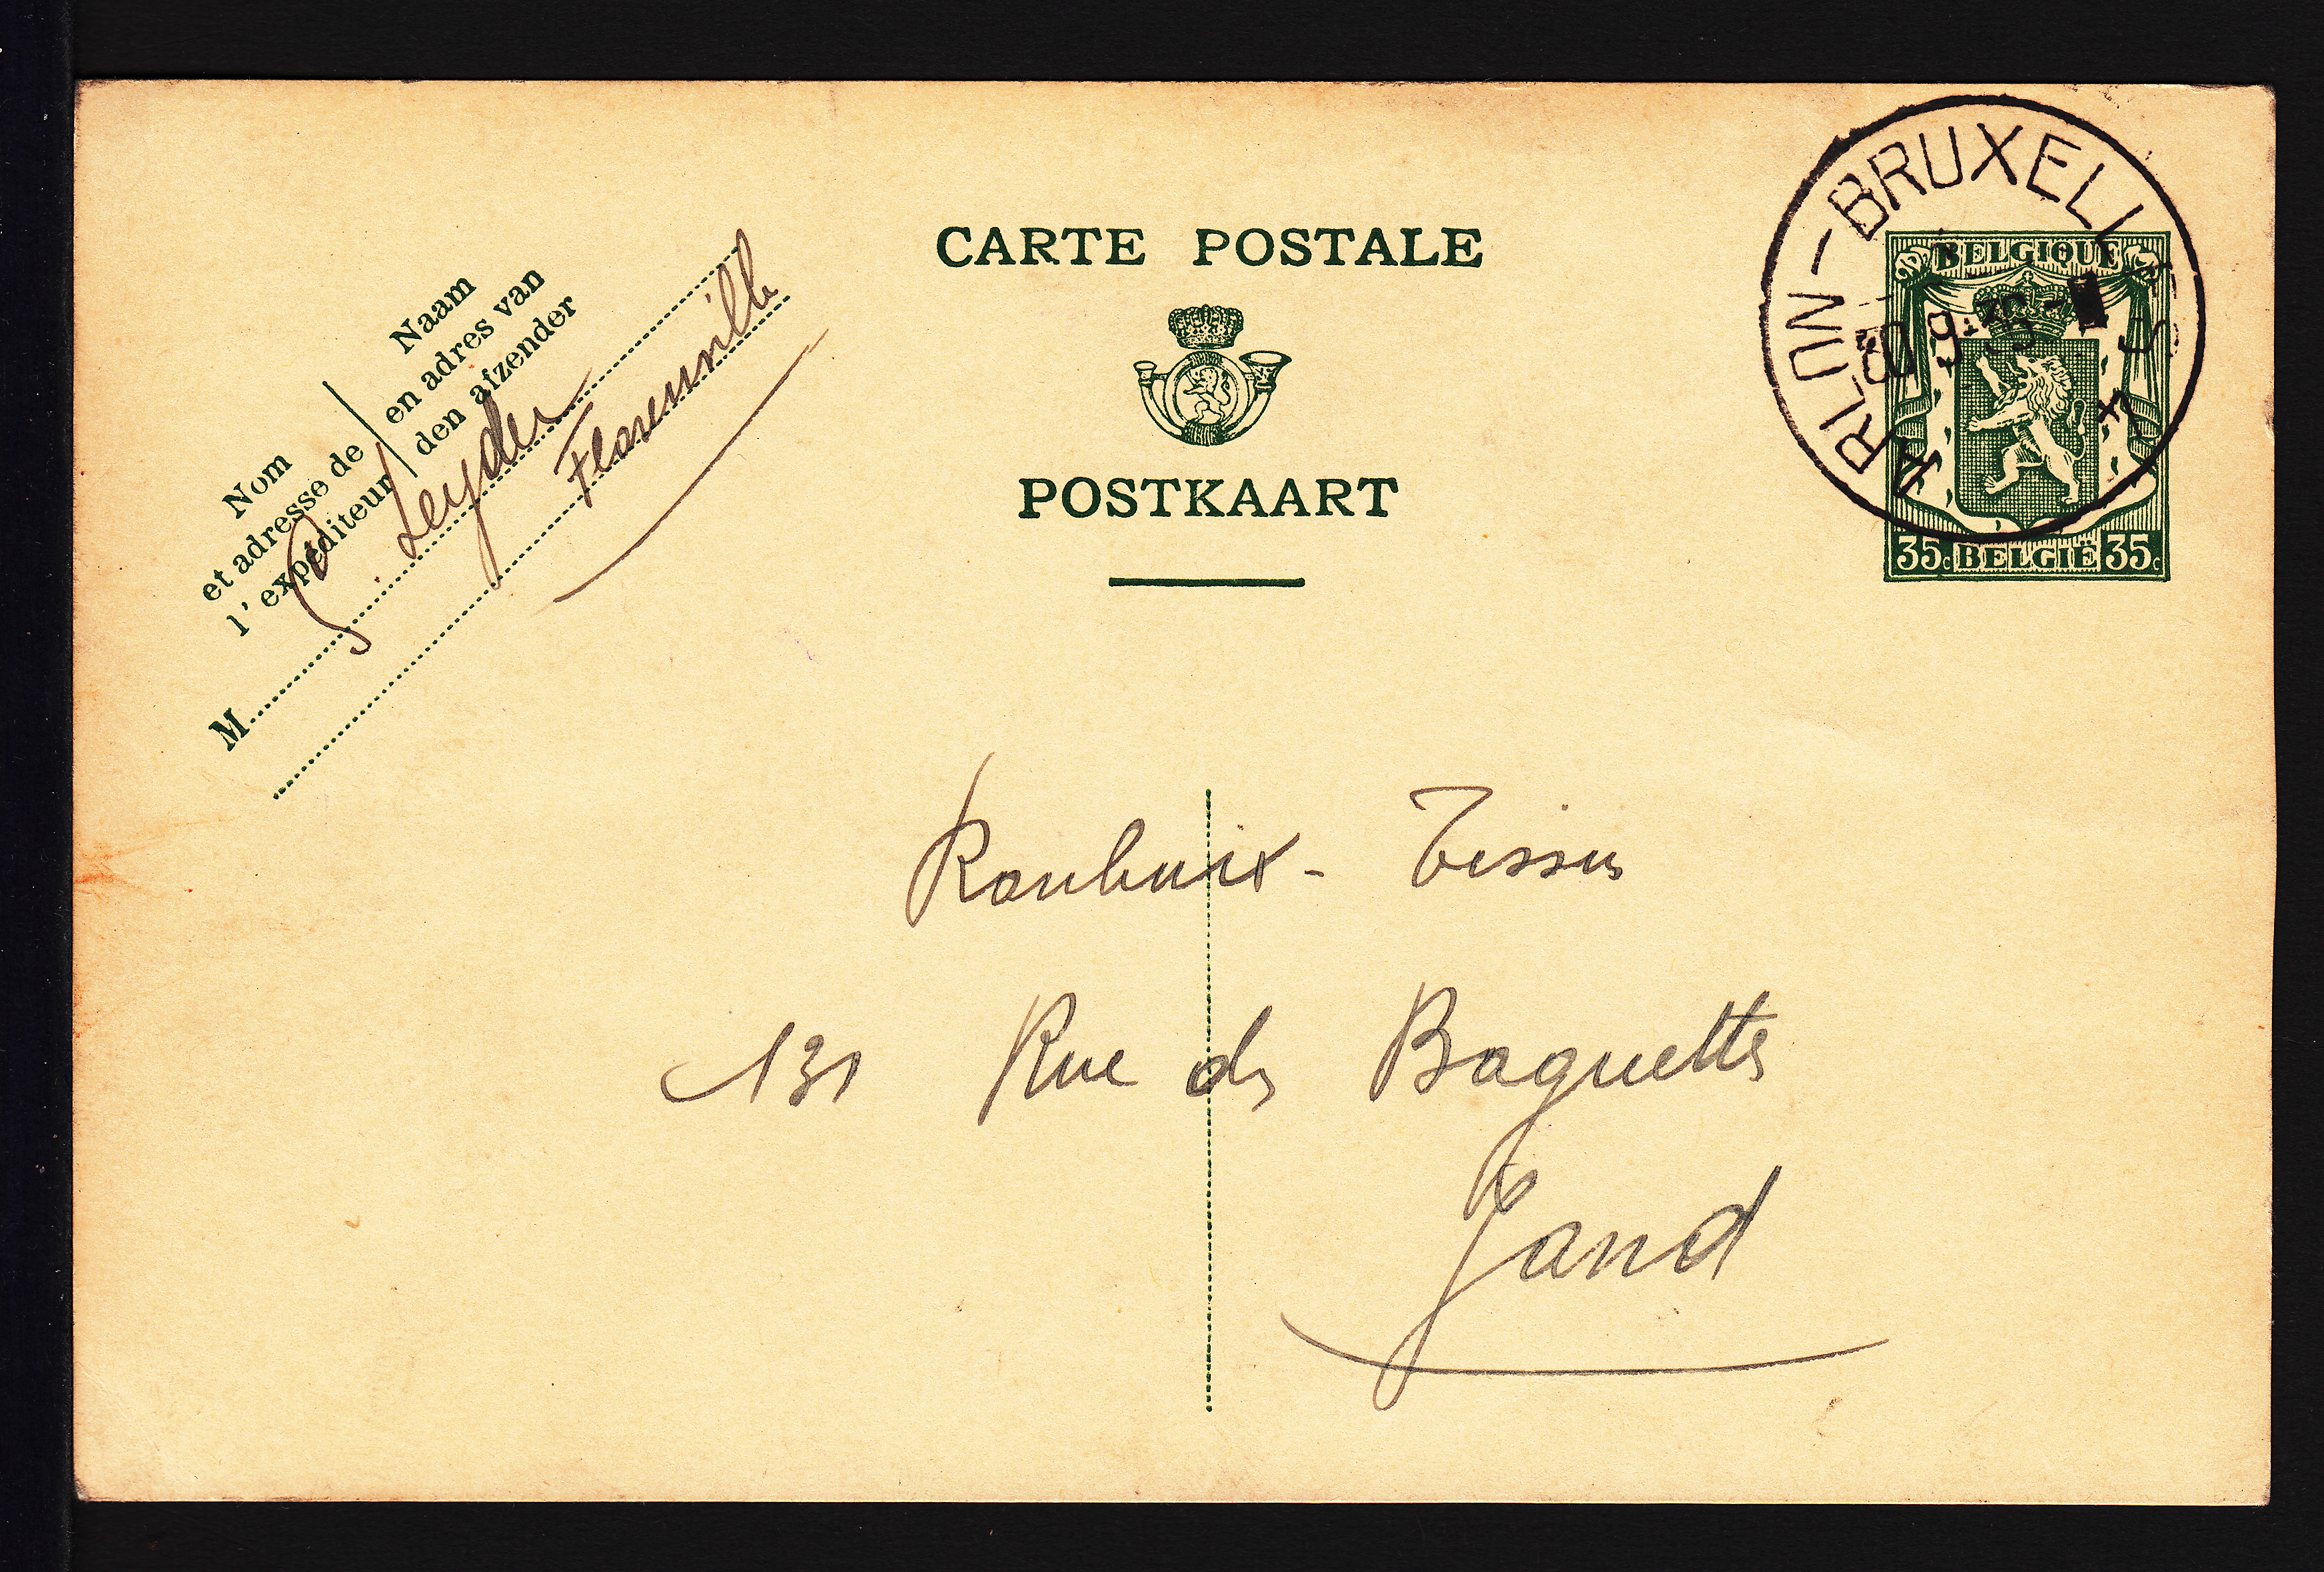 CARTE POSTALE
POSTKAART
Nom
et adresse de
l'expéditeur
Naam
en adres van
den afzender
M
Leyder
Florenville
ARLON-BRUXELLES
4
BELGIQUE
35c BELGIË 35c
Roubaix - Tissus
131 Rue des Baguettes
Gand